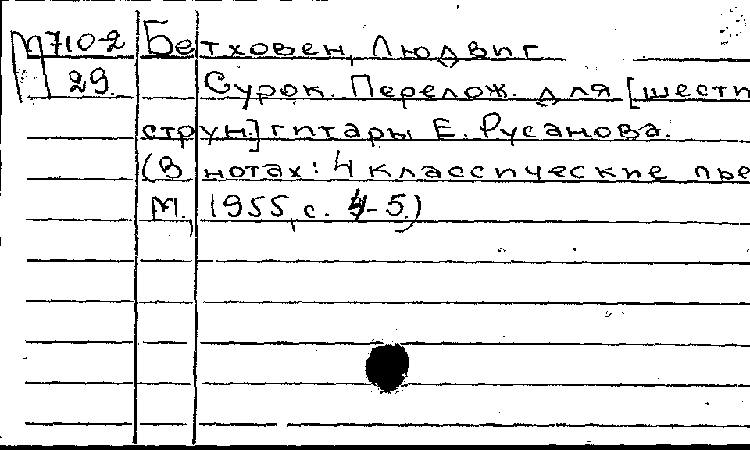 М710-2 Бетховен, Людвиг
29. Сурок. Перелож. для [шести
струн.] гитары Е. Русанова.
(В нотах: 4 классические пье
М., 1955, с. 4-5.)